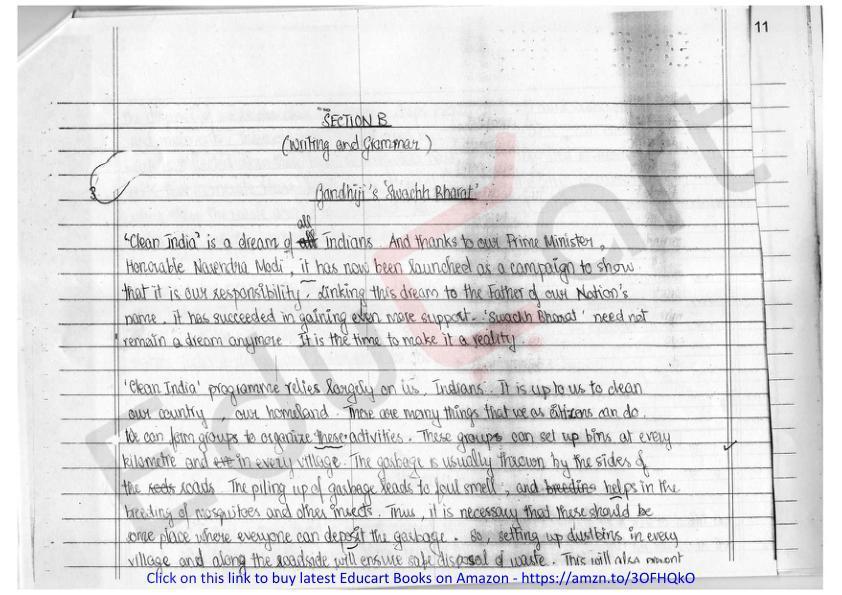 11
SECTION B
(Writing and Grammar)
3
Gandhiji's 'Swachh Bharat'
all
"Clean India" is a dream of all Indians. And thanks to our Prime Minister,
Honorable Narendra Modi, it has now been launched as a campaign to show
that it is our responsibility. Linking this dream to the Father of our Nation's
name, it has succeeded in gaining even more support. 'Swachh Bharat' need not
remain a dream anymore. It is the time to make it a reality.
'Clean India' programme relies largely on us, Indians. It is up to us to clean
our country - our homeland. There are many things that we as citizens can do.
We can form groups to organize these activities. These groups can set up bins at every
kilometre and in every village. The garbage is usually thrown by the sides of
the roads. The piling up of garbage leads to foul smell, and breeding helps in the
breeding of mosquitoes and other insects. Thus, it is necessary that there should be
some place where everyone can deposit the garbage. So, setting up dustbins in every
village and along the roadside will ensure safe disposal of waste. This will also
Educart
Click on this link to buy latest Educart Books on Amazon - https://amzn.to/3OFHQkO